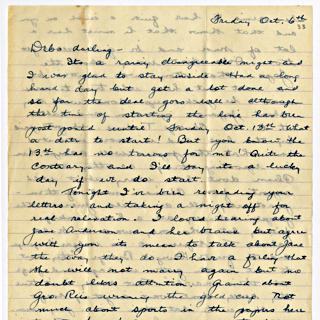 Friday Oct. 6th
33
Debs darling -
Its a rainy disagreeable night and
I was glad to stay inside. Had a long
hard day but got a lot done and
so far the deal goes well although
the time of starting the line has been
postponed until Friday Oct. 13th. What
a date to start! But you know the
13th has no terrors for me. Quite the
contrary and I'll say its a lucky
day if we do start.
Tonight I've been rereading your
letters and taking a night off for
real relaxation. I loved hearing about
Jane Anderson and her braids but agree
with you its mean to talk about Jane
the way they do. I have a feeling that
she will not marry again but no
doubt likes attention. Grand about
Geo. Reis winning the gold cup. Not
much about sports in the papers here